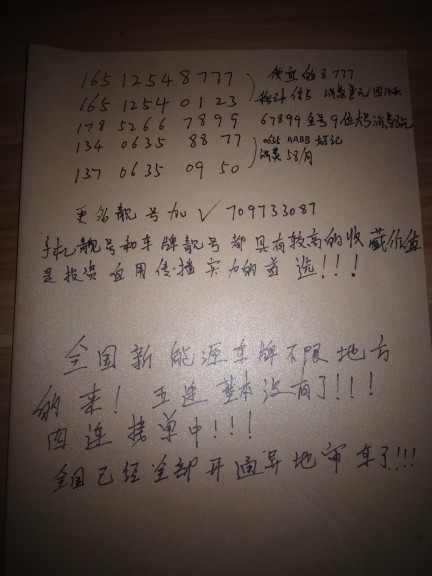 165 1254 8777 便宜的3 777
165 1254 0123
178 5266 7899 67899 全号9位大号 消息
134 0635 88 77 0635 AABB 好记
137 0635 09 50 消费58/月
更多靓号加V 709733087
手机靓号和车牌靓号都具有较高的收藏价值
是投资自用传播实力的首选!!!
全国新能源车牌不限地方
的来! 五连基本没有了!!!
四连接单中!!!
全国已经全部开通异地审车了!!!